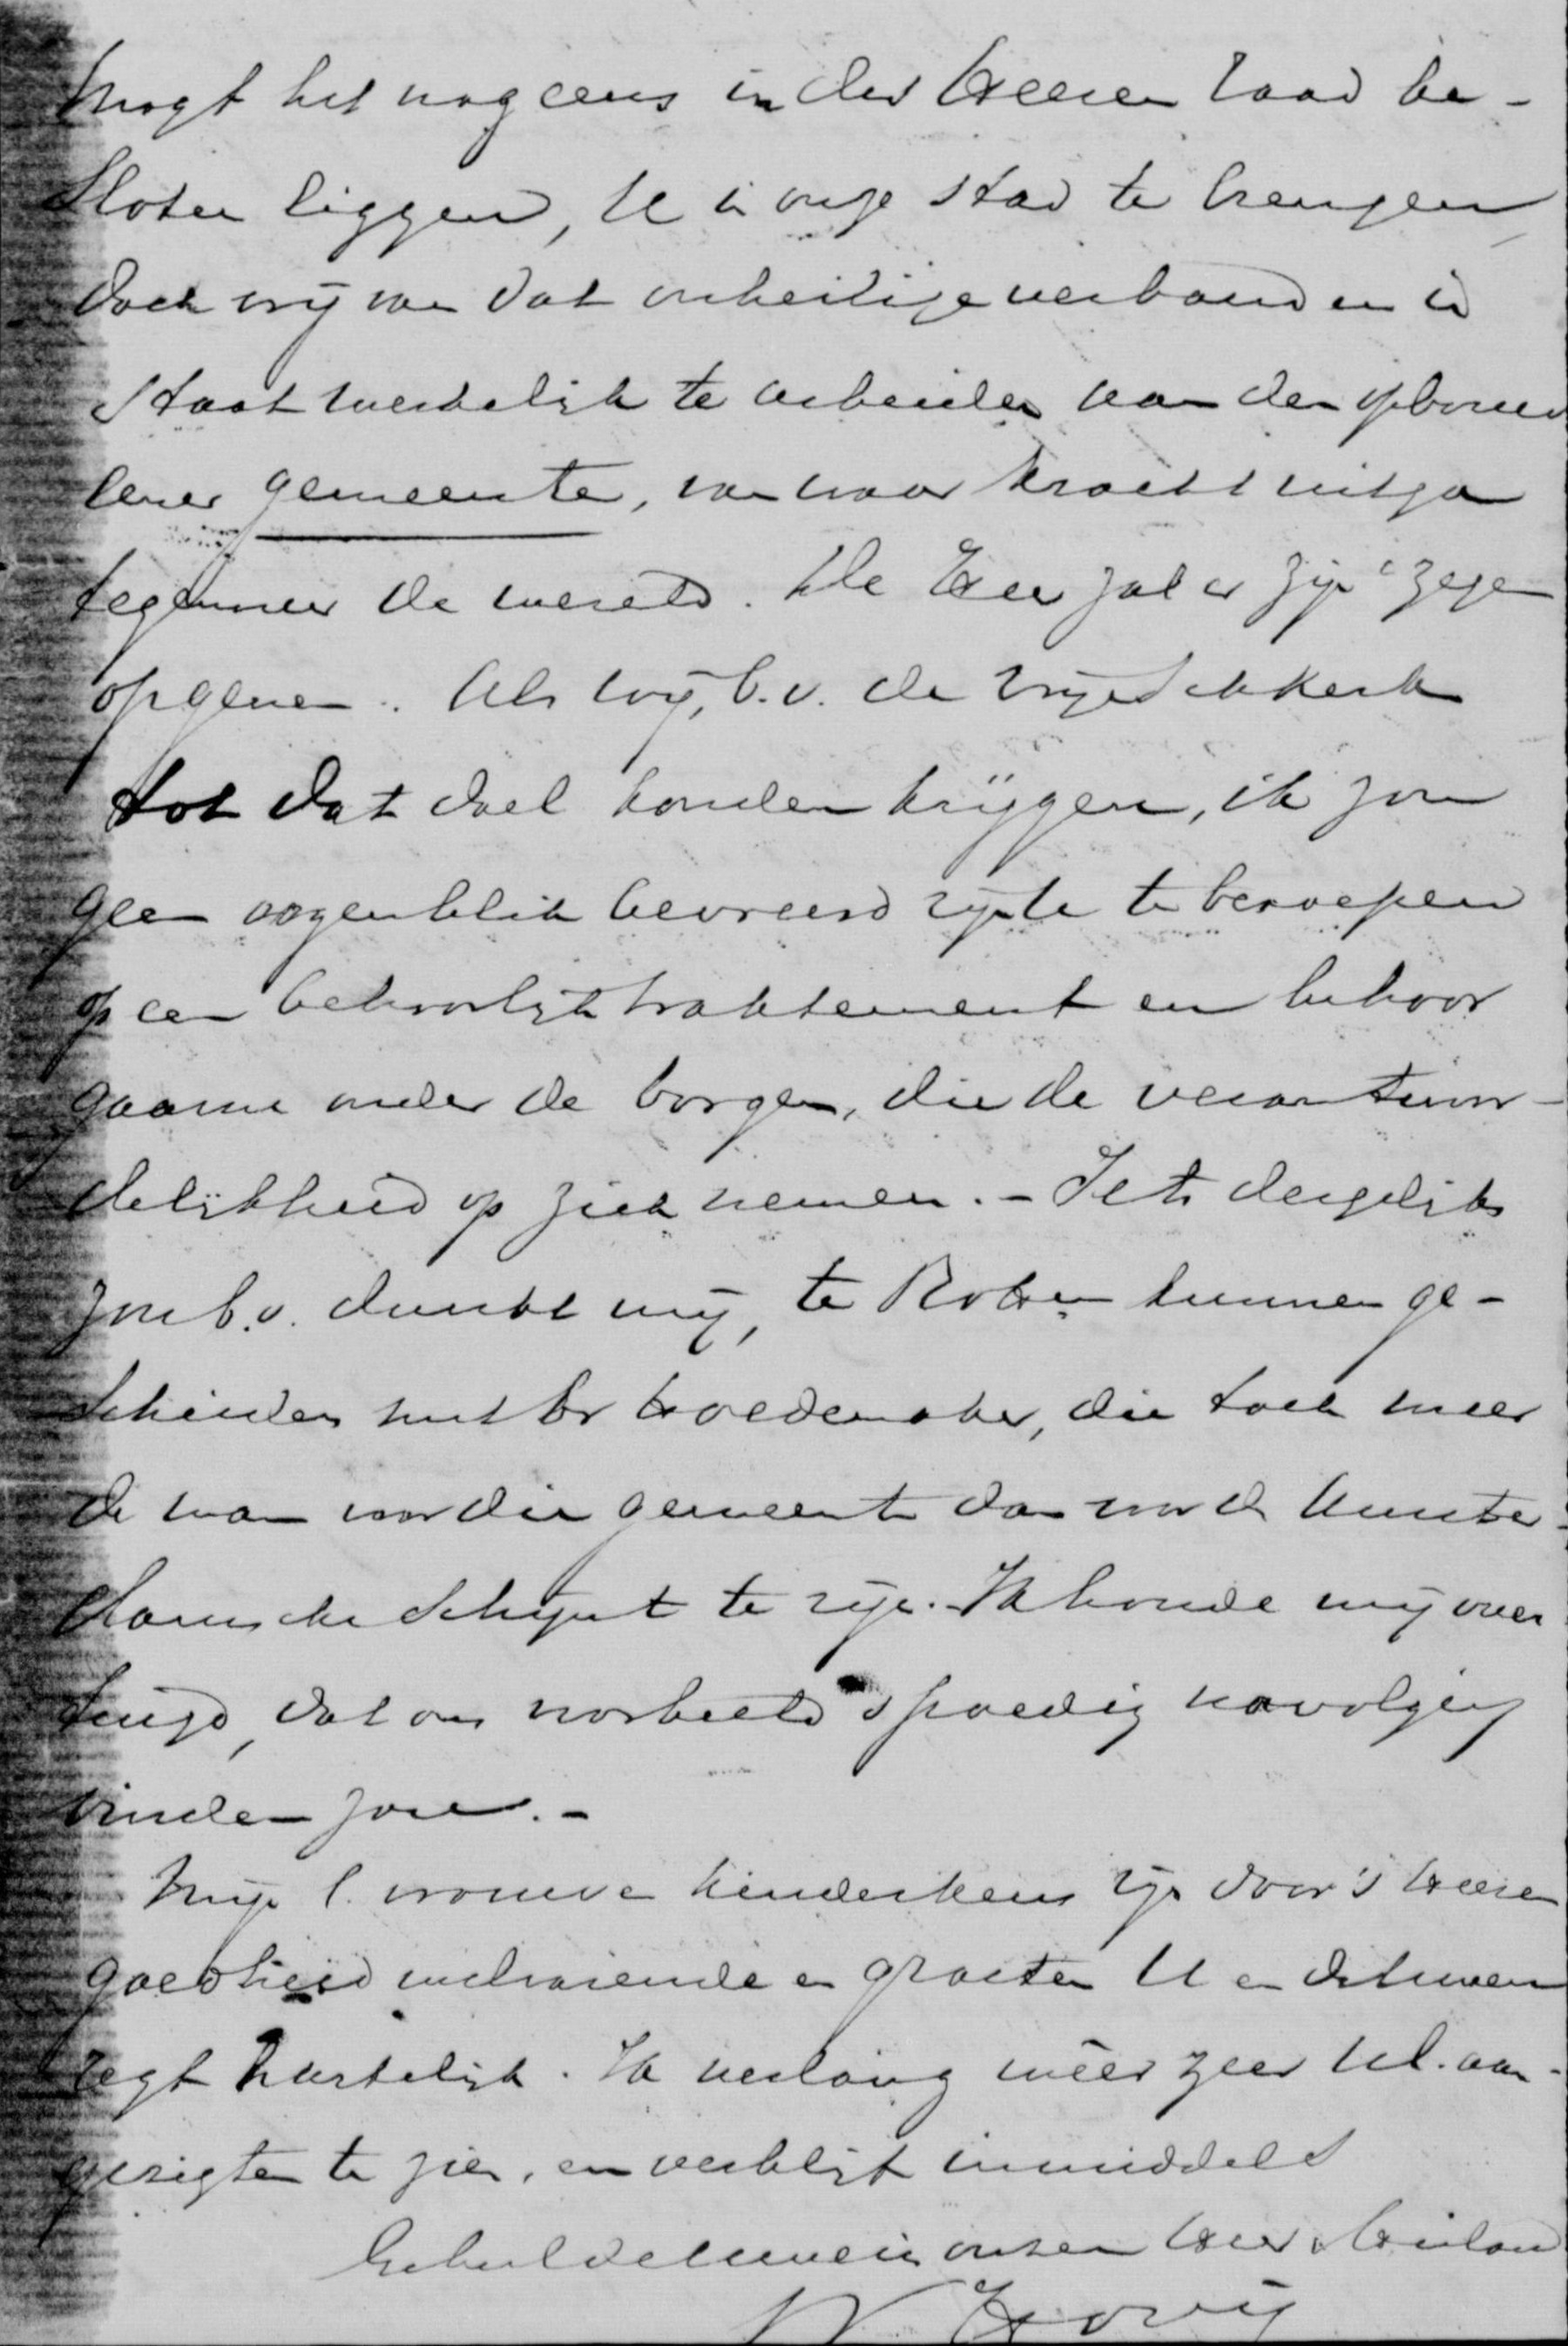 Mogt het nog eens in des Heeren raad be-
sloten liggen, U in onze stad te brengen,
doch vrij van dat onheilige verband en in
staat werkelijk te arbeiden aan den opbouw
eener gemeente, van waar kracht uitga
tegenover de wereld. De Heer zal er zijn zegen
op geven. Als wij, b.v. de vrije Schkerk
tot dat doel konden krijgen, ik zou
geen oogenblik bevreesd zijn U te beroepen
op een behoorlijk traktement en behoor
gaarne onder de borgen, die de verantwoor-
delijkheid op zich nemen. - Iets dergelijks
zou b.v. dunkt mij, te Rotter kunnen ge-
schieden met Br Hoedemaker, die toch meer
de man voor die gemeente dan voor de Amster-
damsche schijnt te zijn. Ik houde mij over
tuigd, dat ons voorbeeld spoedig navolging
vinden zou. -
Mijn l. vrouw en kinderkens zijn door 's Heeren
goedheid welvarende en groeten U en
regt hartelijk. Ik verlang wêer zeer Ul. aan-
gezigten te zien, en verblijf inmiddels
onzen Heer & Heiland
W Hovij